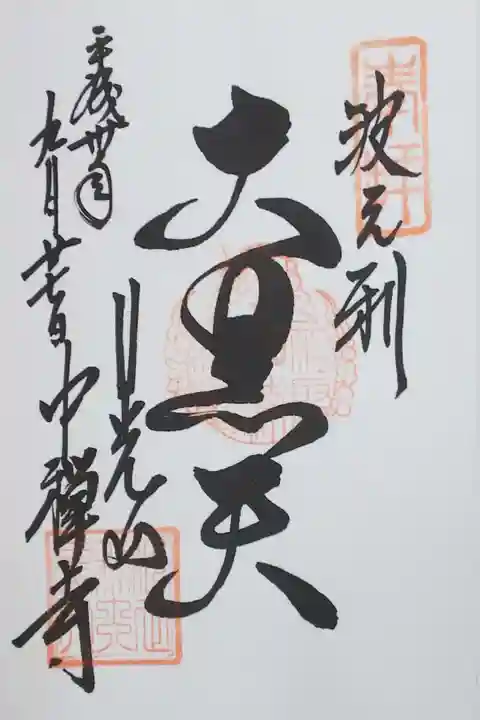 波之利
大黒天
日光山
平成卅年
九月廿七日中禅寺